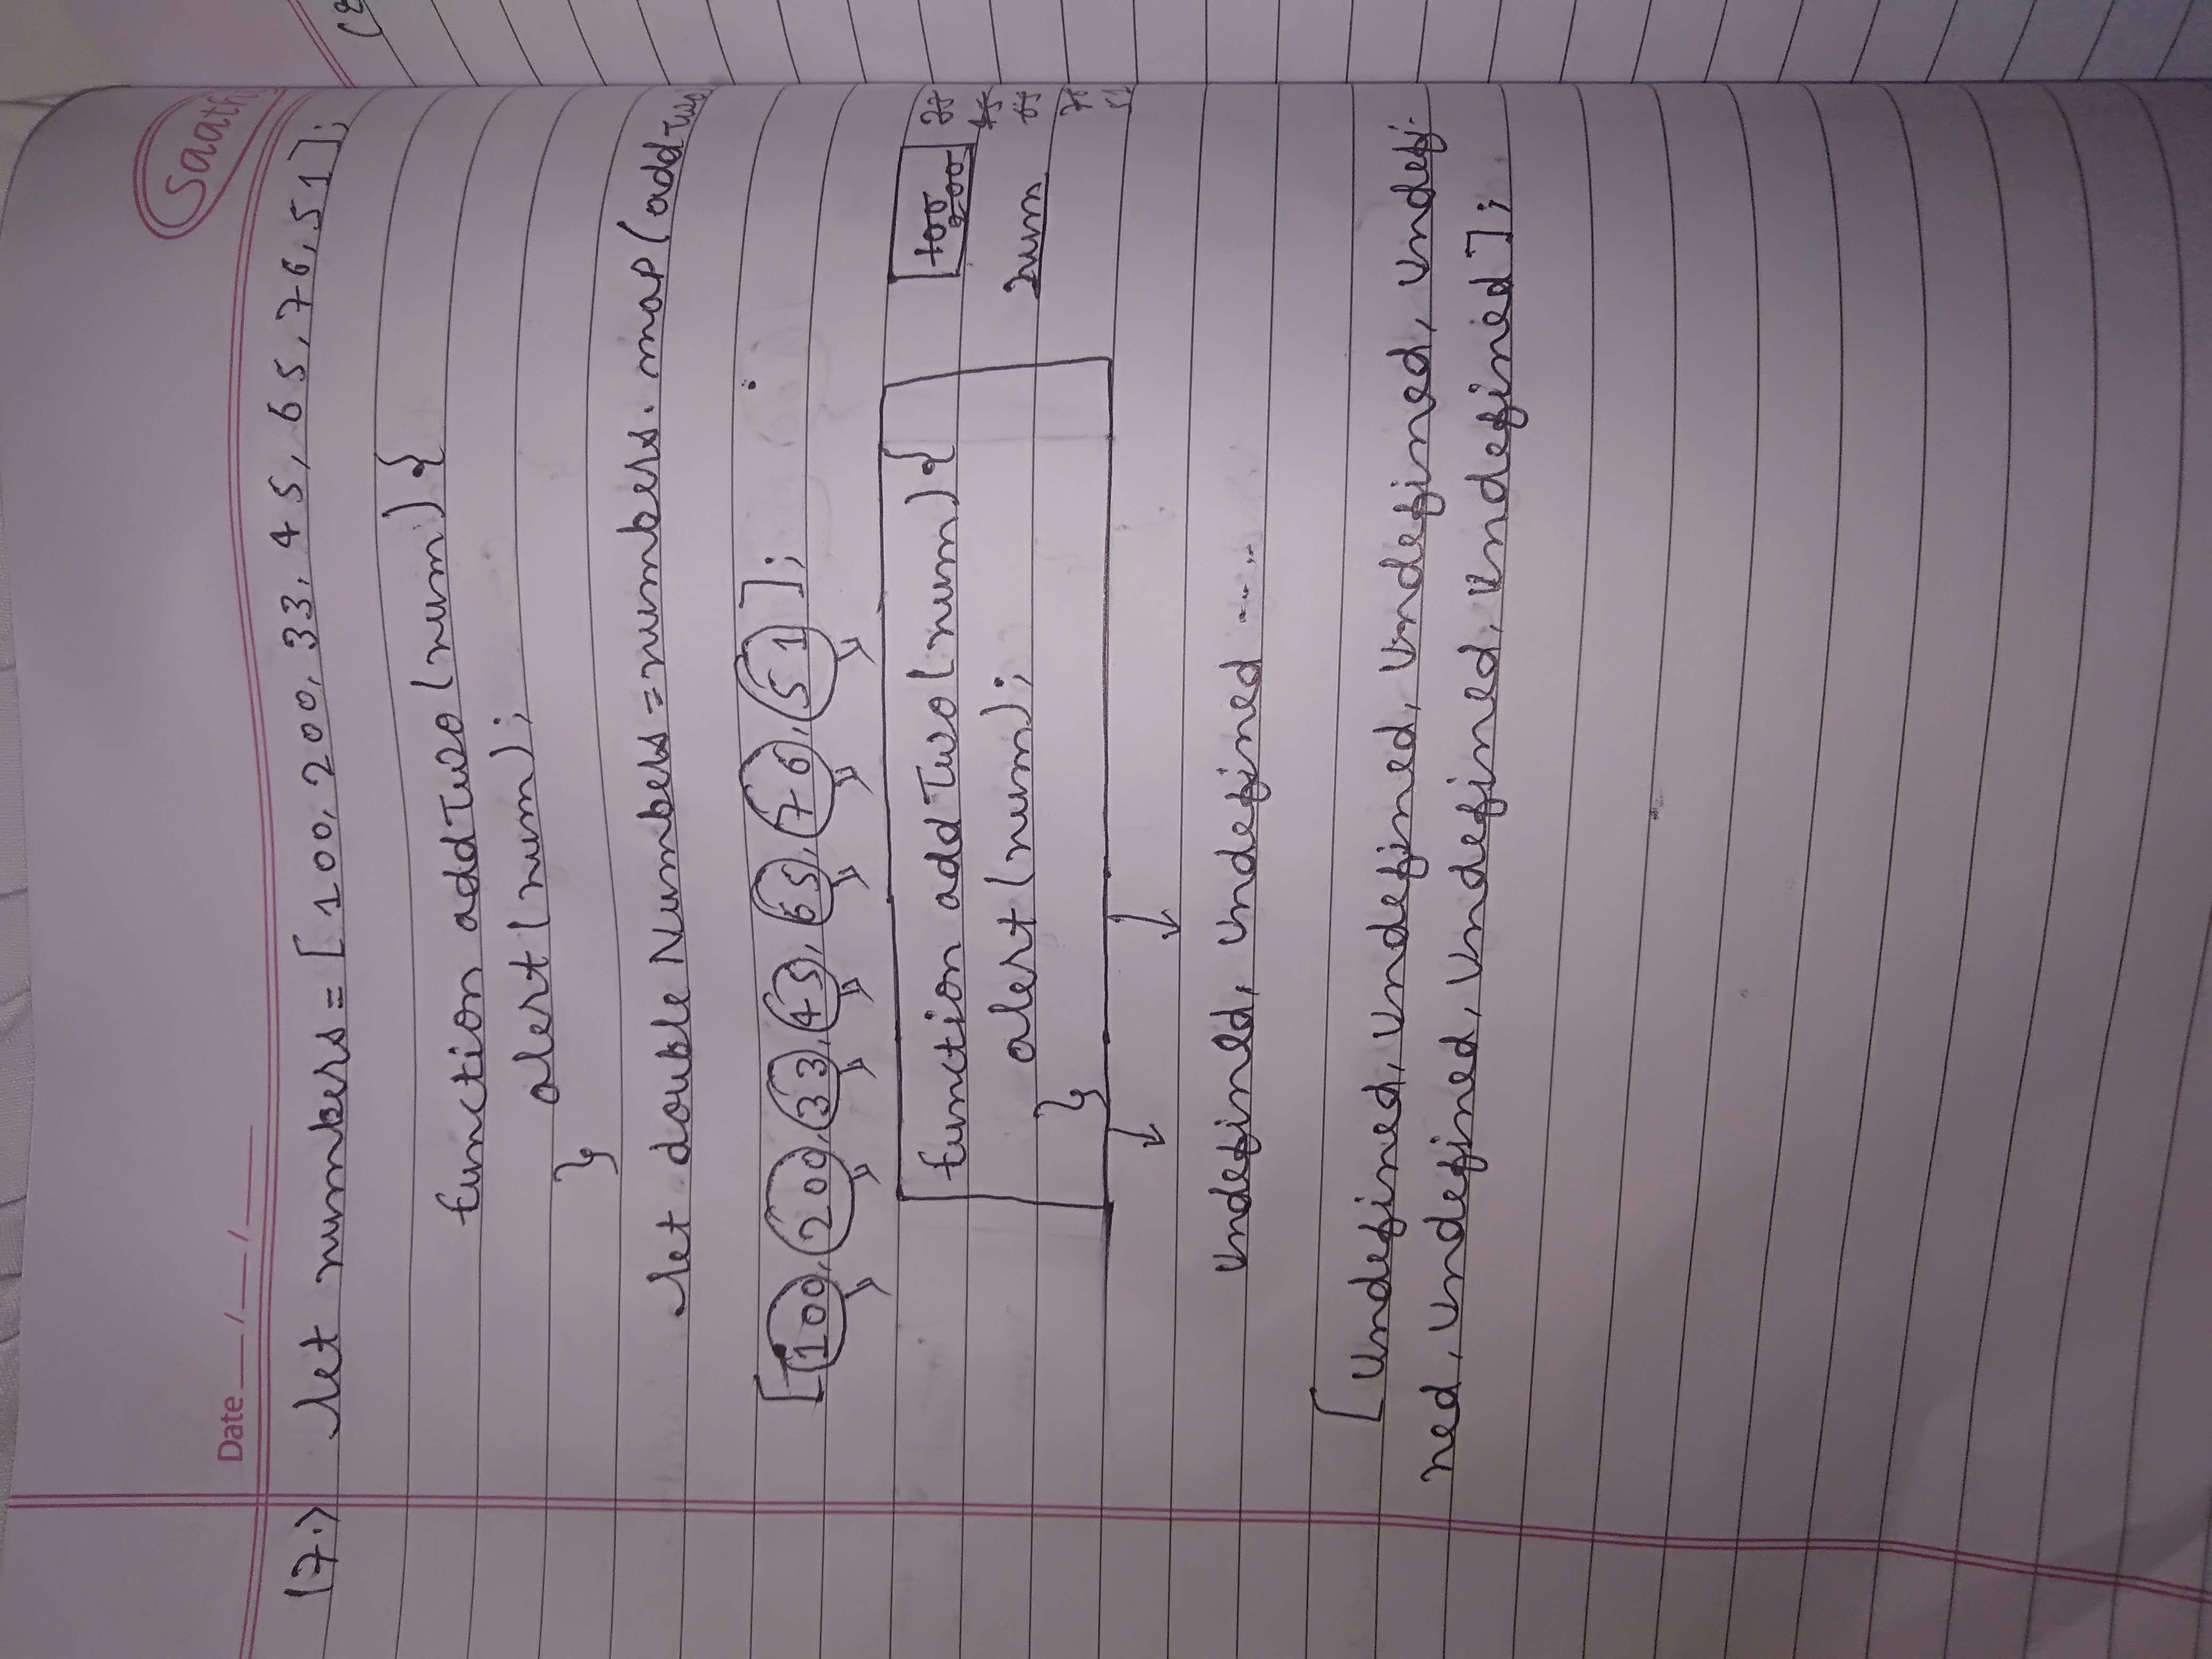 Saath
Date __/__/__
(7.) let numbers = [100, 200, 33, 45, 65, 76, 51];
function addTwo(num) {
alert(num);
}
let doubleNumbers = numbers.map(addTwo
[100, 200, 33, 45, 65, 76, 51];
function addTwo(num) {
alert(num);
}
100
200
num
45
76
51
undefined, undefined ....
[undefined, undefined, undefined, undefined, undefi-
ned, undefined, undefined, undefined];